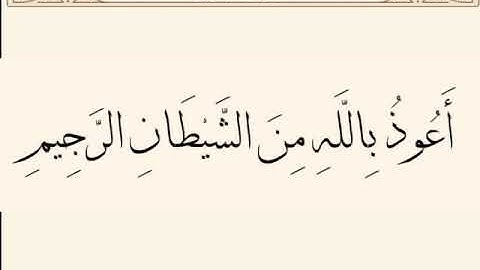 أَعُوذُ بِاللَّهِ مِنَ الشَّيْطَانِ الرَّجِيمِ